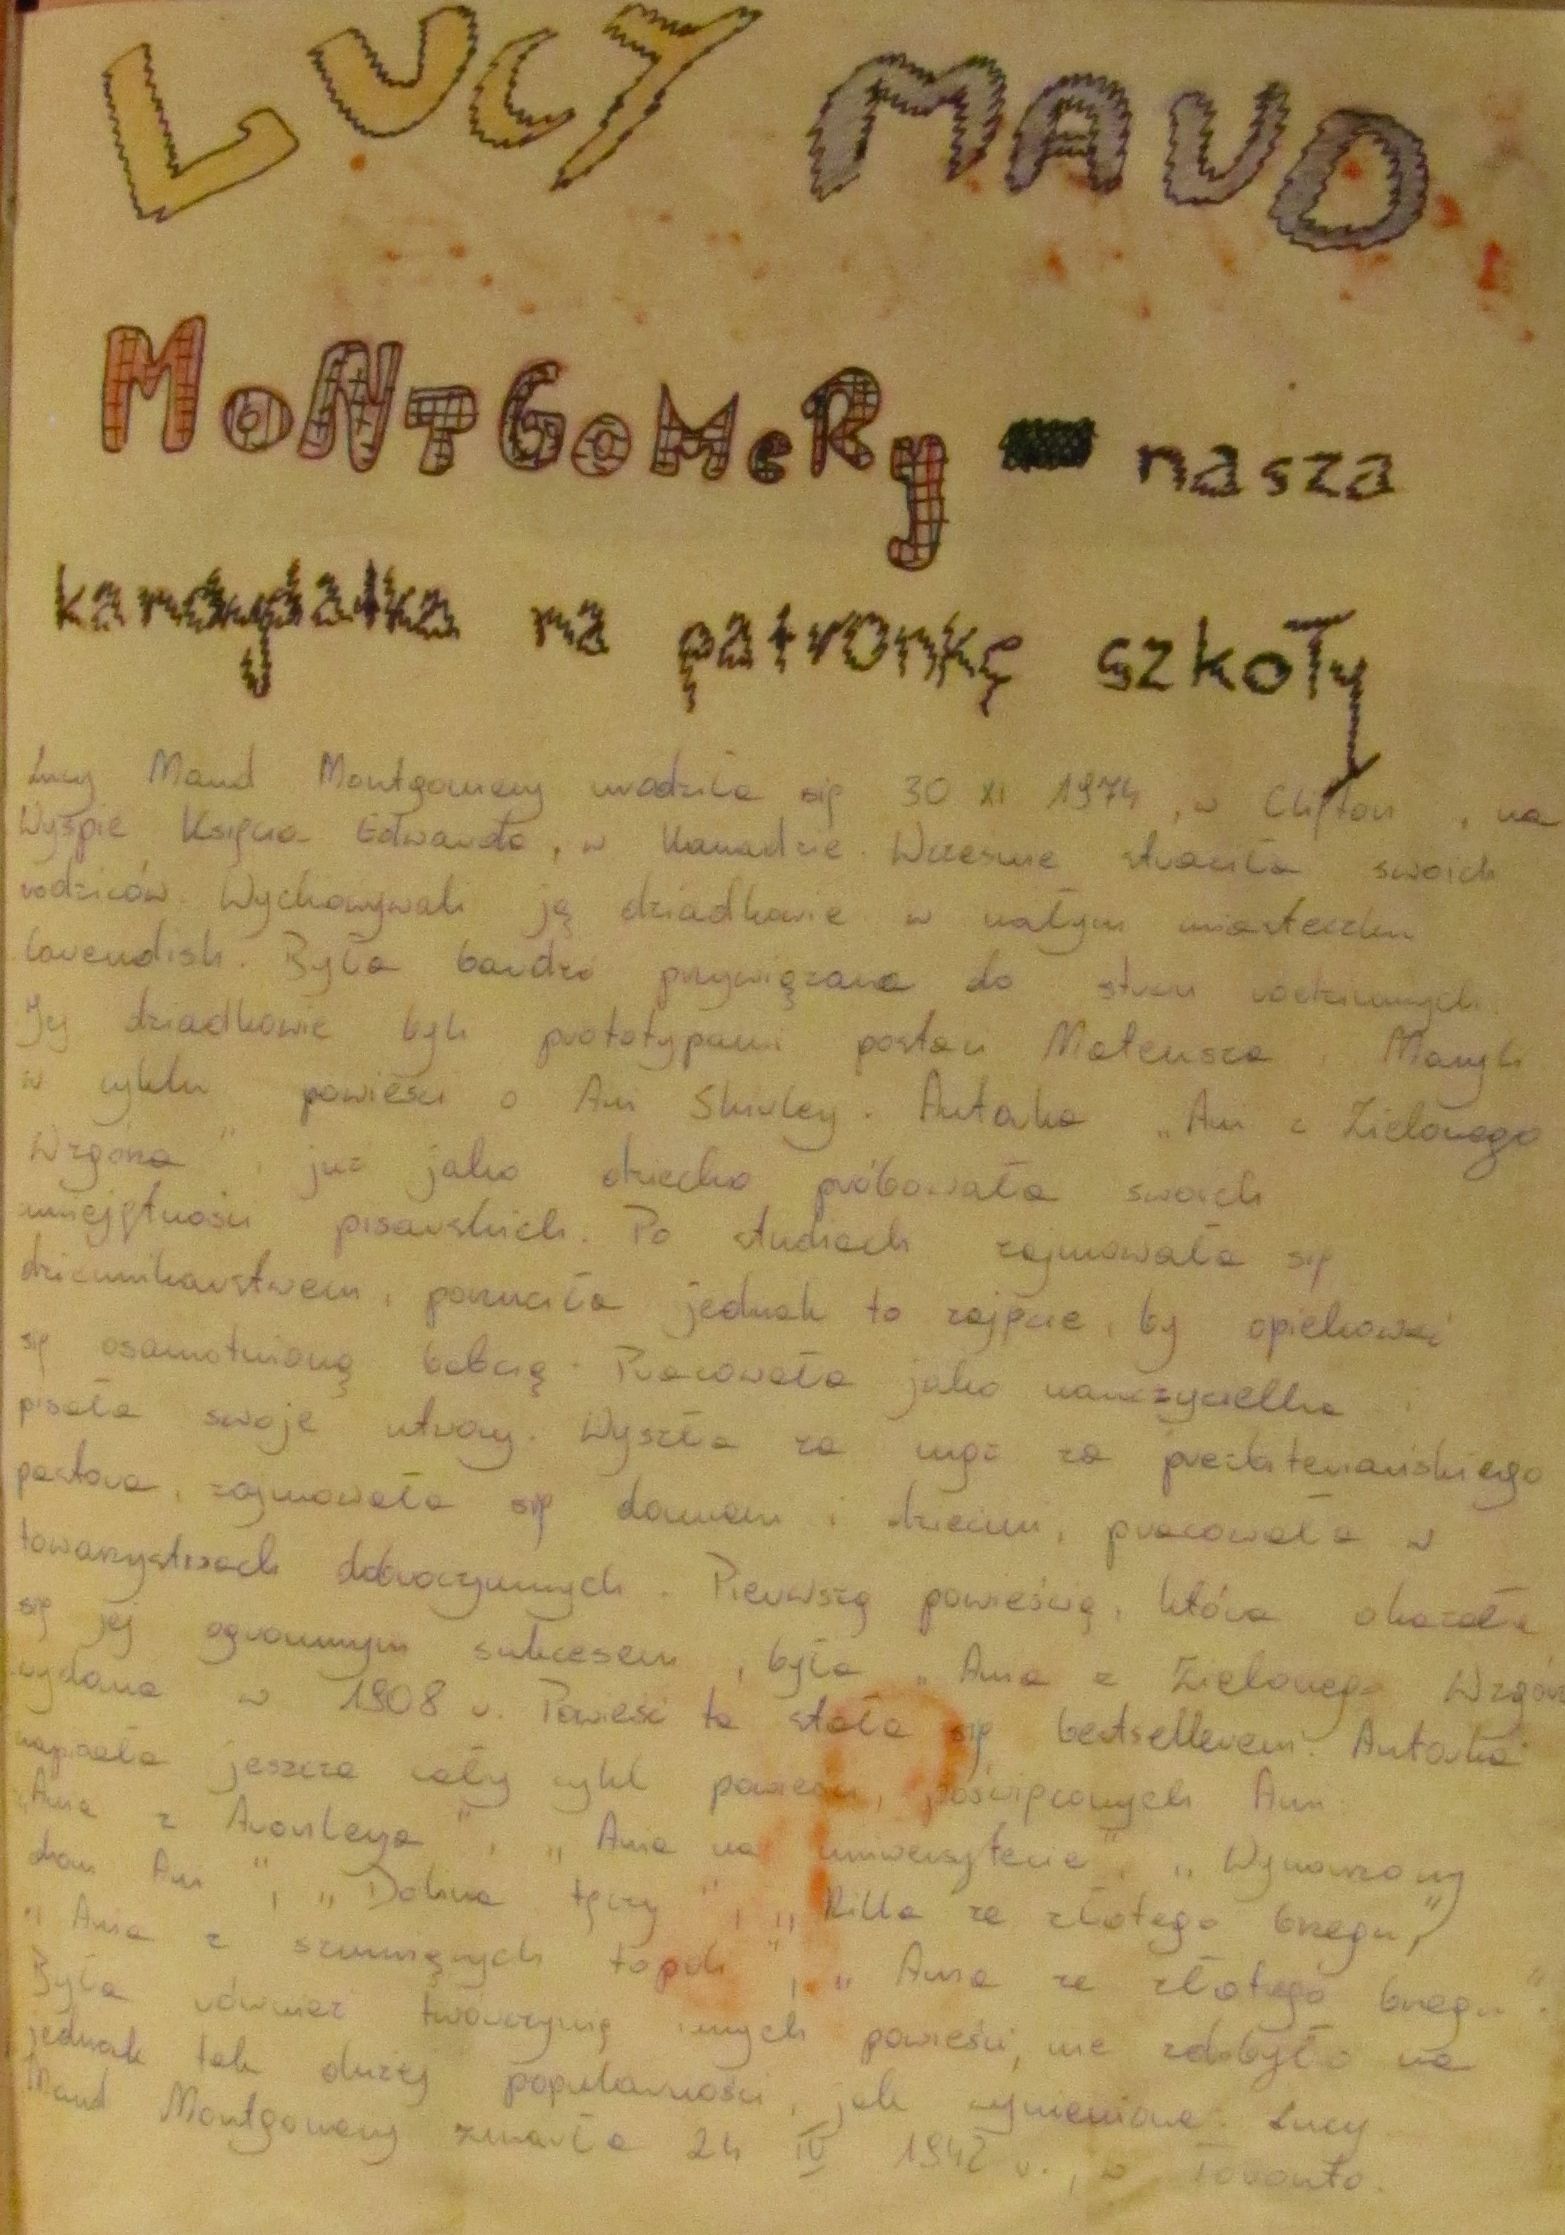 LUCY MAUD
MoNTGoMeRy - nasza
kandydatka na patronkę szkoły
Lucy Maud Montgomery urodziła się 30 XI 1974, w Clifton, na
Wyspie Księcia Edwarda, w Kanadzie. Wcześnie straciła swoich
rodziców. Wychowywali ją dziadkowie w małym miasteczku
Cavendish. Była bardzo przywiązana do stron rodzinnych.
Jej dziadkowie byli prototypami postaci Mateusza i Maryli
w cyklu powieści o Ani Shirley. Autorka „Ani z Zielonego
Wzgórza", już jako dziecko próbowała swoich
umiejętności pisarskich. Po studiach zajmowała się
dziennikarstwem, porzuciła jednak to zajęcie, by opiekować
się osamotnioną babcią. Pracowała jako nauczycielka i
pisała swoje utwory. Wyszła za mąż za prezbiteriańskiego
pastora, zajmowała się domem i dziećmi, pracowała w
towarzystwach dobroczynnych. Pierwszą powieścią, która okazała
się jej ogromnym sukcesem, była „Ania z Zielonego Wzgórz
wydana w 1908 r. Powieść ta stała się bestsellerem. Autorka
napisała jeszcze cały cykl powieści, poświęconych Ani:
„Ania z Avonlea", „Ania na uniwersytecie", „Wymarzony
dom Ani", „Dolina tęczy", „Rilla ze złotego brzegu",
„Ania z szumiących topoli", „Ania ze złotego brzegu".
Była również twórczynią innych powieści, nie zdobyło na
jednak tak dużej popularności, jak wymienione. Lucy
Maud Montgomery zmarła 24 IV 1942 r., w Toronto.